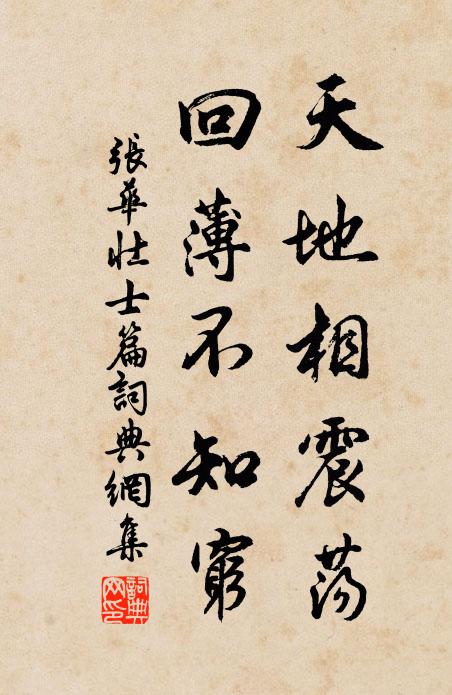 天地相震荡
回薄不知窮
張華壮士篇詞典網集
詞典网印